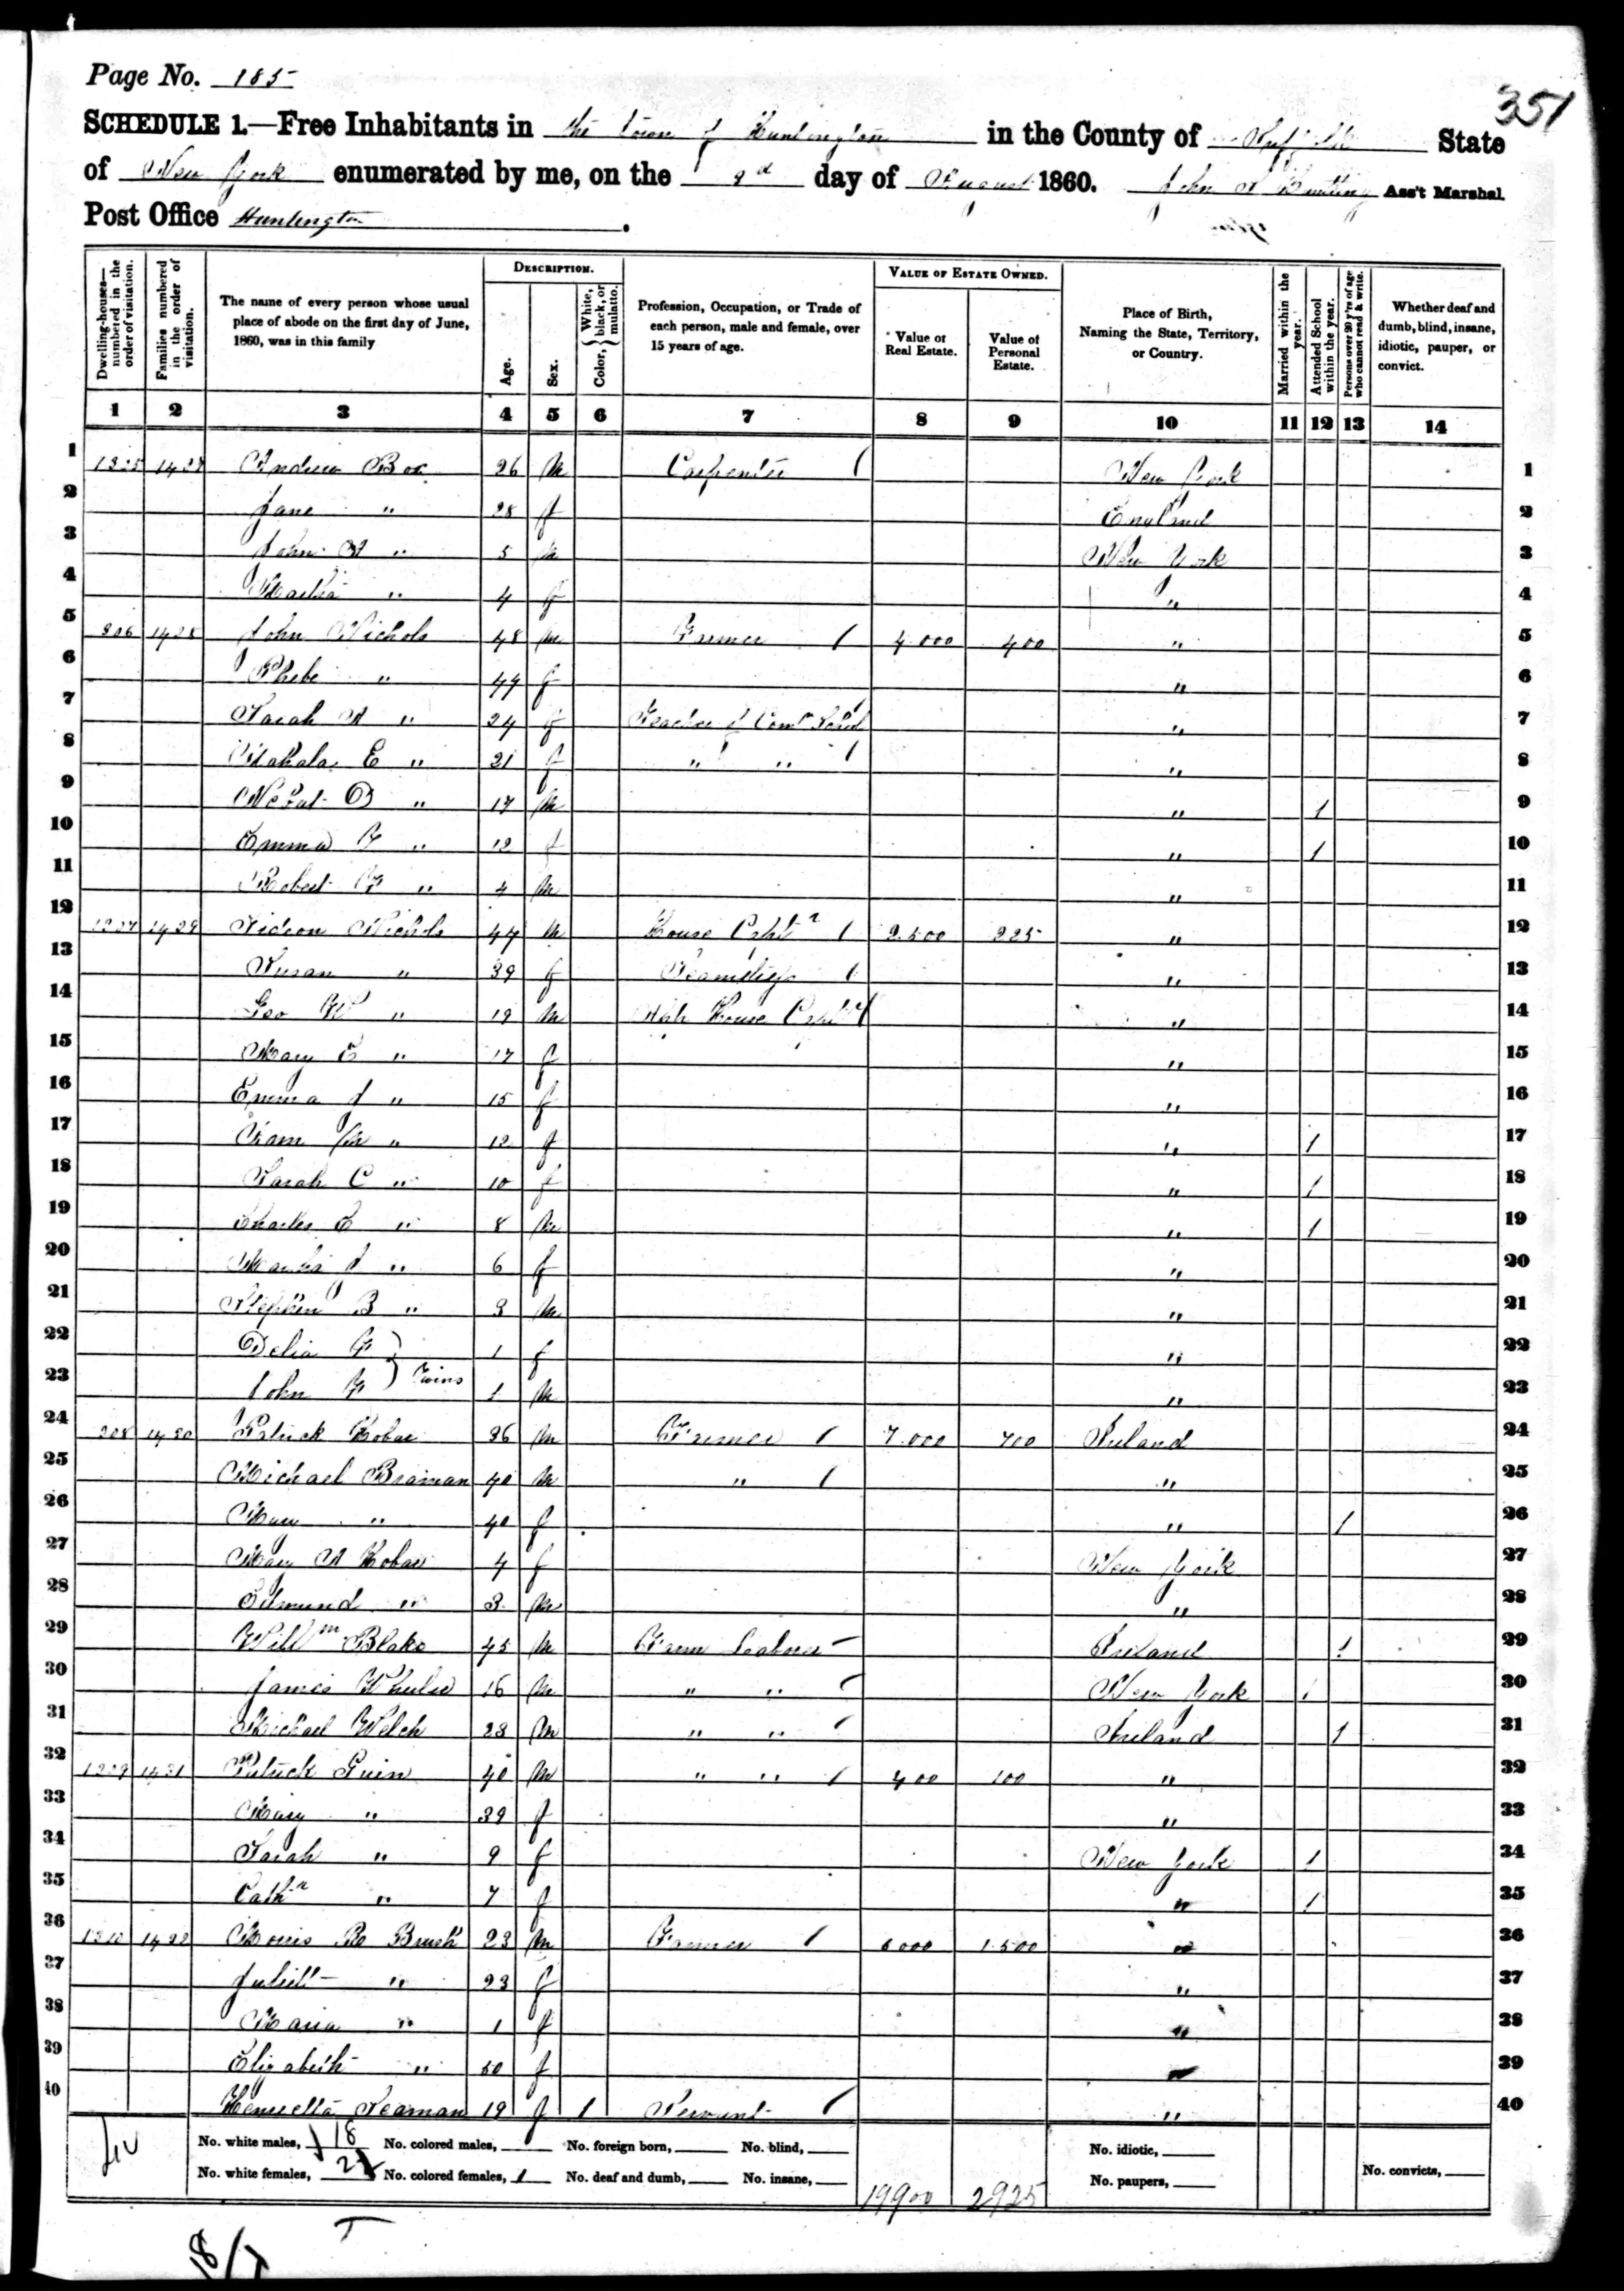 Page No. 185
351
SCHEDULE 1.—Free Inhabitants in the Town of Huntington in the County of Suffolk State
of New York enumerated by me, on the 2d day of August 1860. John Ass't Marshal.
Post Office Huntington.
Dwelling-houses—numbered in the order of visitation. Families numbered in the order of visitation. The name of every person whose usual place of abode on the first day of June, 1860, was in this family DESCRIPTION. Age. Sex. Color, { White, black, or mulatto. Profession, Occupation, or Trade of each person, male and female, over 15 years of age. VALUE OF ESTATE OWNED. Value of Real Estate. Value of Personal Estate. Place of Birth, Naming the State, Territory, or Country. Married within the year. Attended School within the year. Persons over 20 y'rs of age who cannot read & write. Whether deaf and dumb, blind, insane, idiotic, pauper, or convict.
1 2 3 4 5 6 7 8 9 10 11 12 13 14
1 Andrew 26 m Carpenter 1 New York 1
2 Jane " 28 f England 2
3 John A " 5 m New York 3
4 Martha " 4 f " 4
5 1428 John Nichols 48 m Farmer 1 4.000 400 " 5
6 Phebe " 44 f " 6
7 Sarah A " 24 f Teacher of Com 1 " 7
8 Mahala E " 21 f " " 1 " 8
9 " 17 m " 1 9
10 Emma F " 12 f " 1 10
11 Robert F " 4 m " 11
12 1429 Gideon Nichols 44 m House Carptr 1 2.500 225 " 12
13 Susan " 39 f 1 " 13
14 Geo W " 19 m House 1 " 14
15 Mary E " 17 f " 15
16 Emma J " 15 f " 16
17 " 12 f " 1 17
18 Sarah C " 10 f " 1 18
19 Charles E " 8 m " 1 19
20 Martha J " 6 f " 20
21 Stephen B " 3 m " 21
22 Delia F } 1 f " 22
23 John F } Twins 1 m " 23
24 1430 Patrick 36 m Farmer 1 7.000 700 Ireland 24
25 Michael 40 m " 1 " 25
26 Mary " 40 f " 1 26
27 Mary A 4 f New York 27
28 Edmund " 3 m " 28
29 Willm Blake 45 m Farm Laborer Ireland 1 29
30 James 16 m " " 1 New York 1 30
31 Michael Welch 23 m " " 1 Ireland 1 31
32 1431 Patrick 40 m " " 1 400 100 " 32
33 Mary " 39 f " 33
34 Sarah " 9 f New York 1 34
35 Cathn " 7 f " 1 35
36 1432 Morris Brush 23 m Farmer 1 6000 1.500 " 36
37 Juliett " 23 f " 37
38 Maria " 1 f " 38
39 Elizabeth " 50 f " 39
40 Henrietta Seaman 19 f 1 Servant 1 " 40
No. white males, 18 No. colored males, No. foreign born, No. blind, No. idiotic,
No. white females, No. colored females, 1 No. deaf and dumb, No. insane, 19900 2925 No. paupers, No. convicts,